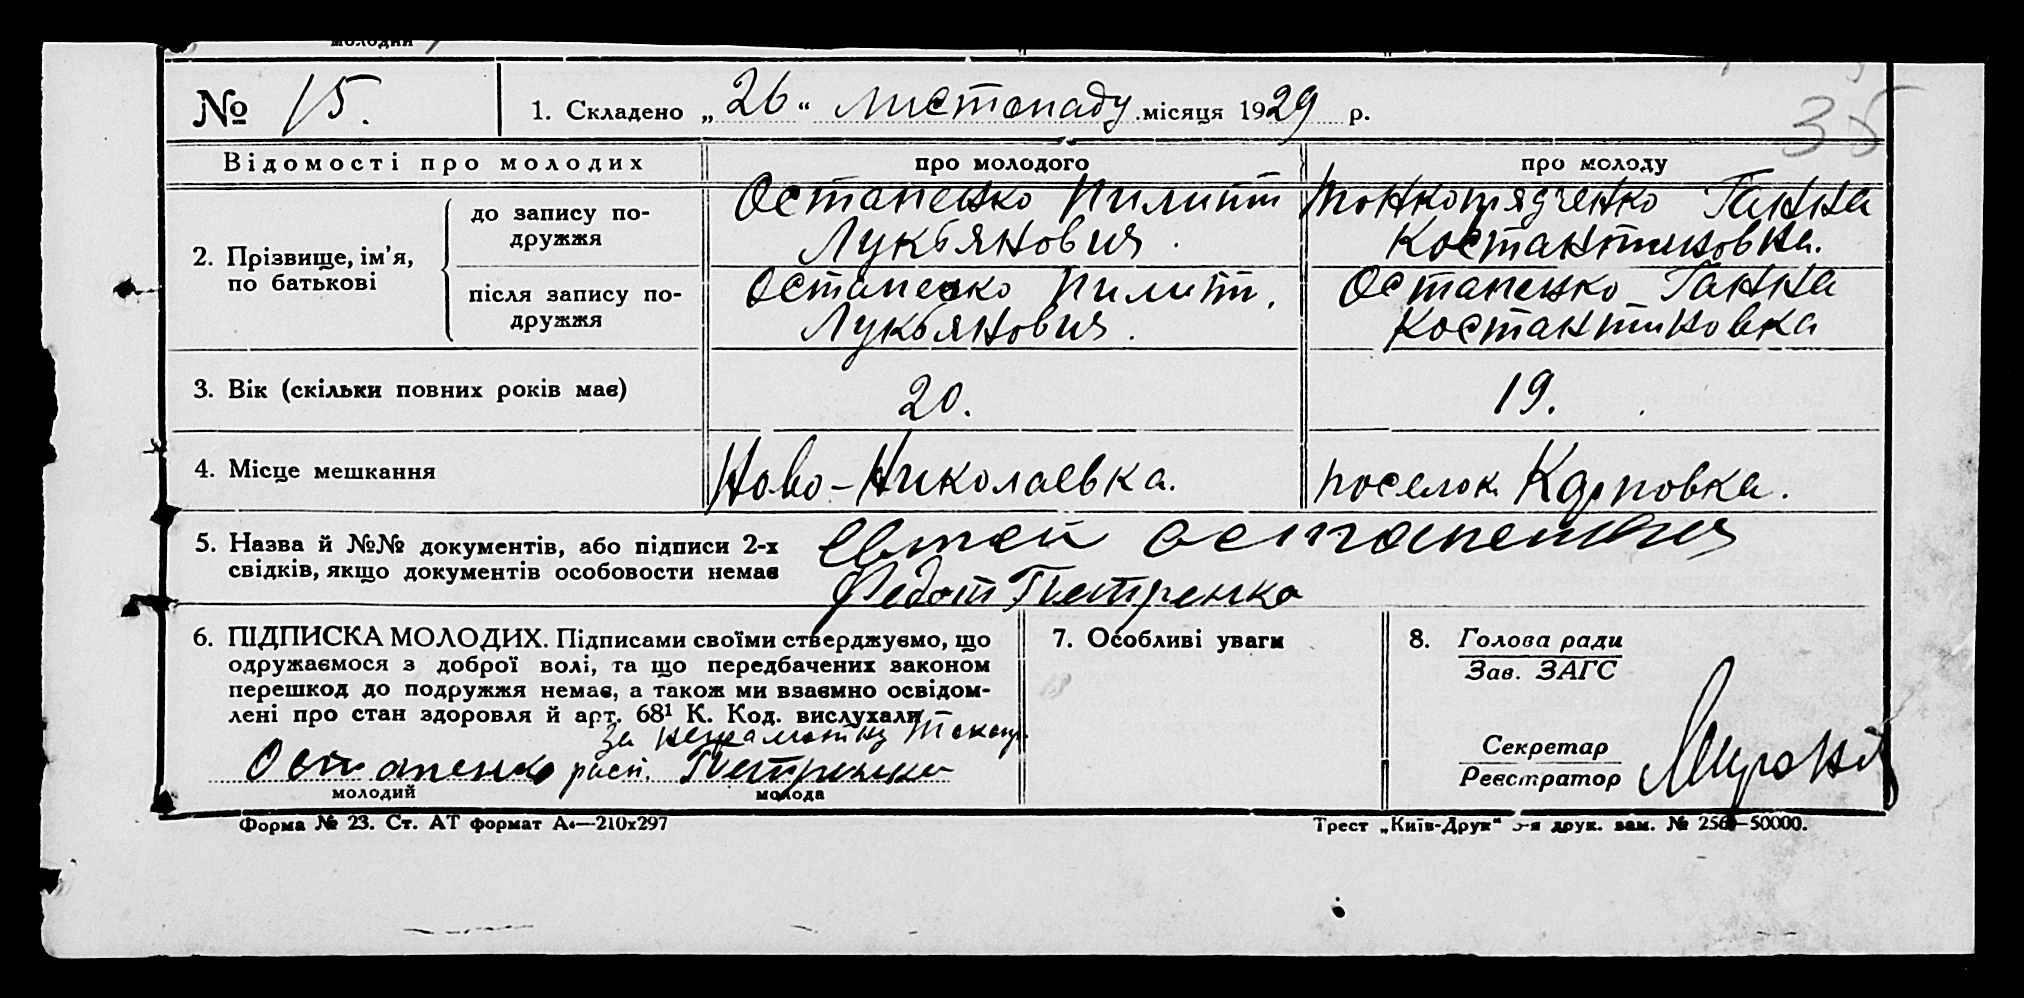 № 15.
1. Складено „26“ листопаду місяця 1929 р.
35
Відомості про молодих
про молодого
про молоду
2. Прізвище, ім'я, по батькові
до запису по-
дружжя
Остапенко Пилипп
Лукьянович.
Тонкопрядченко Ганна
Костантиновна.
після запису по-
дружжя
Остапенко Пилипп.
Лукьянович.
Остапенко Ганна
Костантиновка
3. Вік (скільки повних років має)
20.
19.
4. Місце мешкання
Ново-Николаевка.
поселок Карповка.
5. Назва й №№ документів, або підписи 2-х
свідків, якщо документів особовости немає
Федот Петренко
6. ПІДПИСКА МОЛОДИХ. Підписами своїми стверджуємо, що
одружаємося з доброї волі, та що передбачених законом
перешкод до подружжя немає, а також ми взаємно освідом-
лені про стан здоровля й арт. 68¹ К. Код. вислухали
За неграмотну
Остапенко расп. Петренко
молодий
молода
7. Особливі уваги
8. Голова ради
Зав. ЗАГС
Секретар
Реєстратор
Форма № 23. Ст. АТ формат А4—210х297
Трест „Київ-Друк“ друк. зам. № 256 —50000.